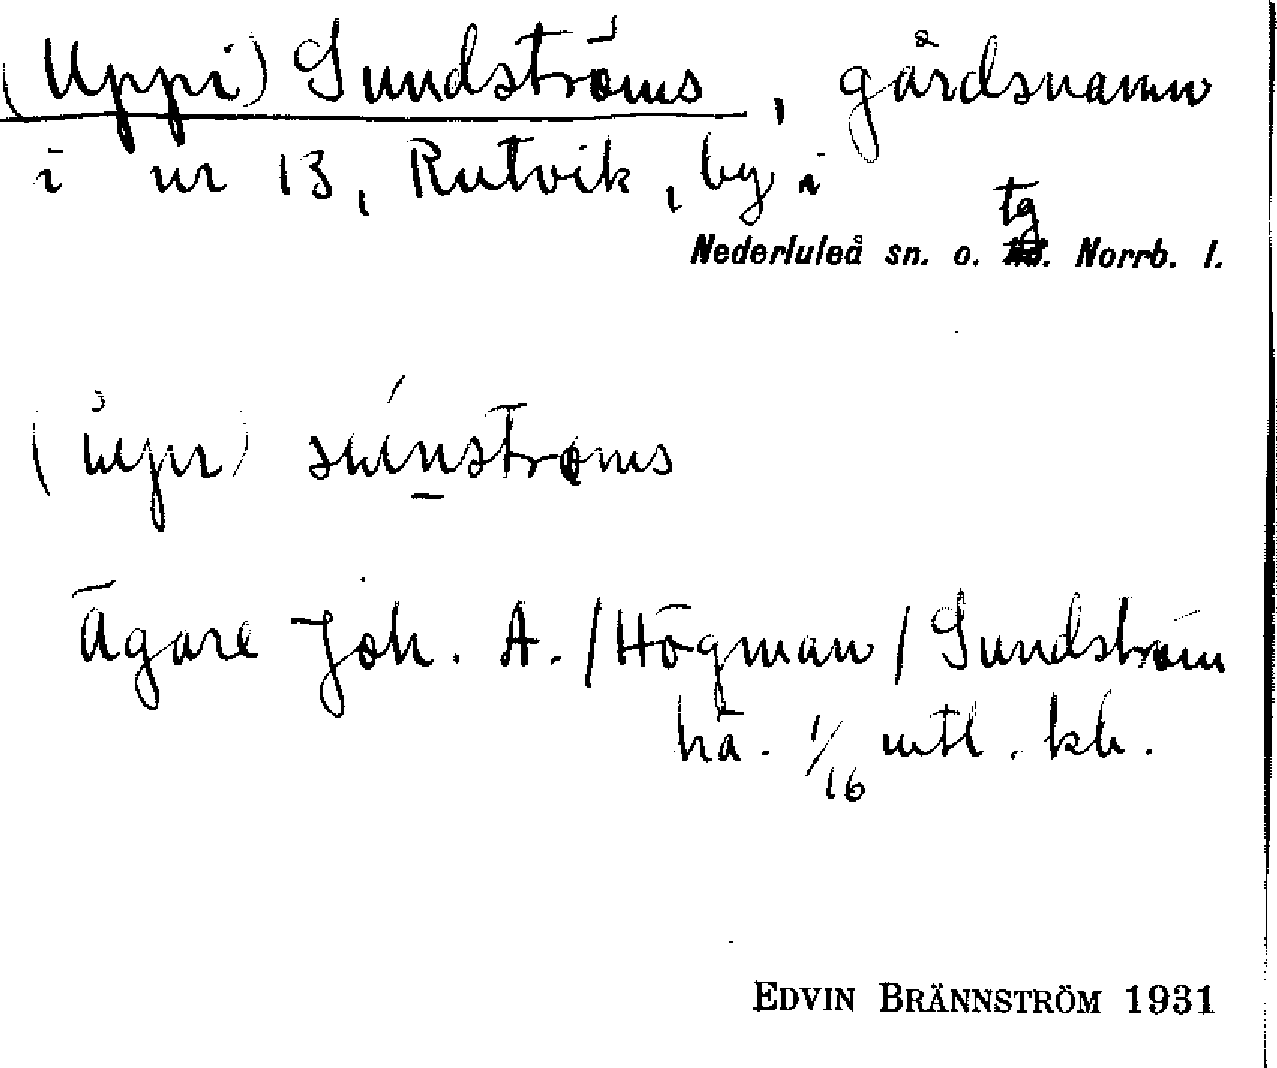 (Uppi) Sundströms, gårdsnamn
i nr 13, Rutvik, by i
tg
Nederluleå sn. o. hd. Norrb. l.
súnstroms
Ägare Joh. A. /Högman/ Sundström
hä. 1/16 mtl. kh.
EDVIN BRÄNNSTRÖM 1931